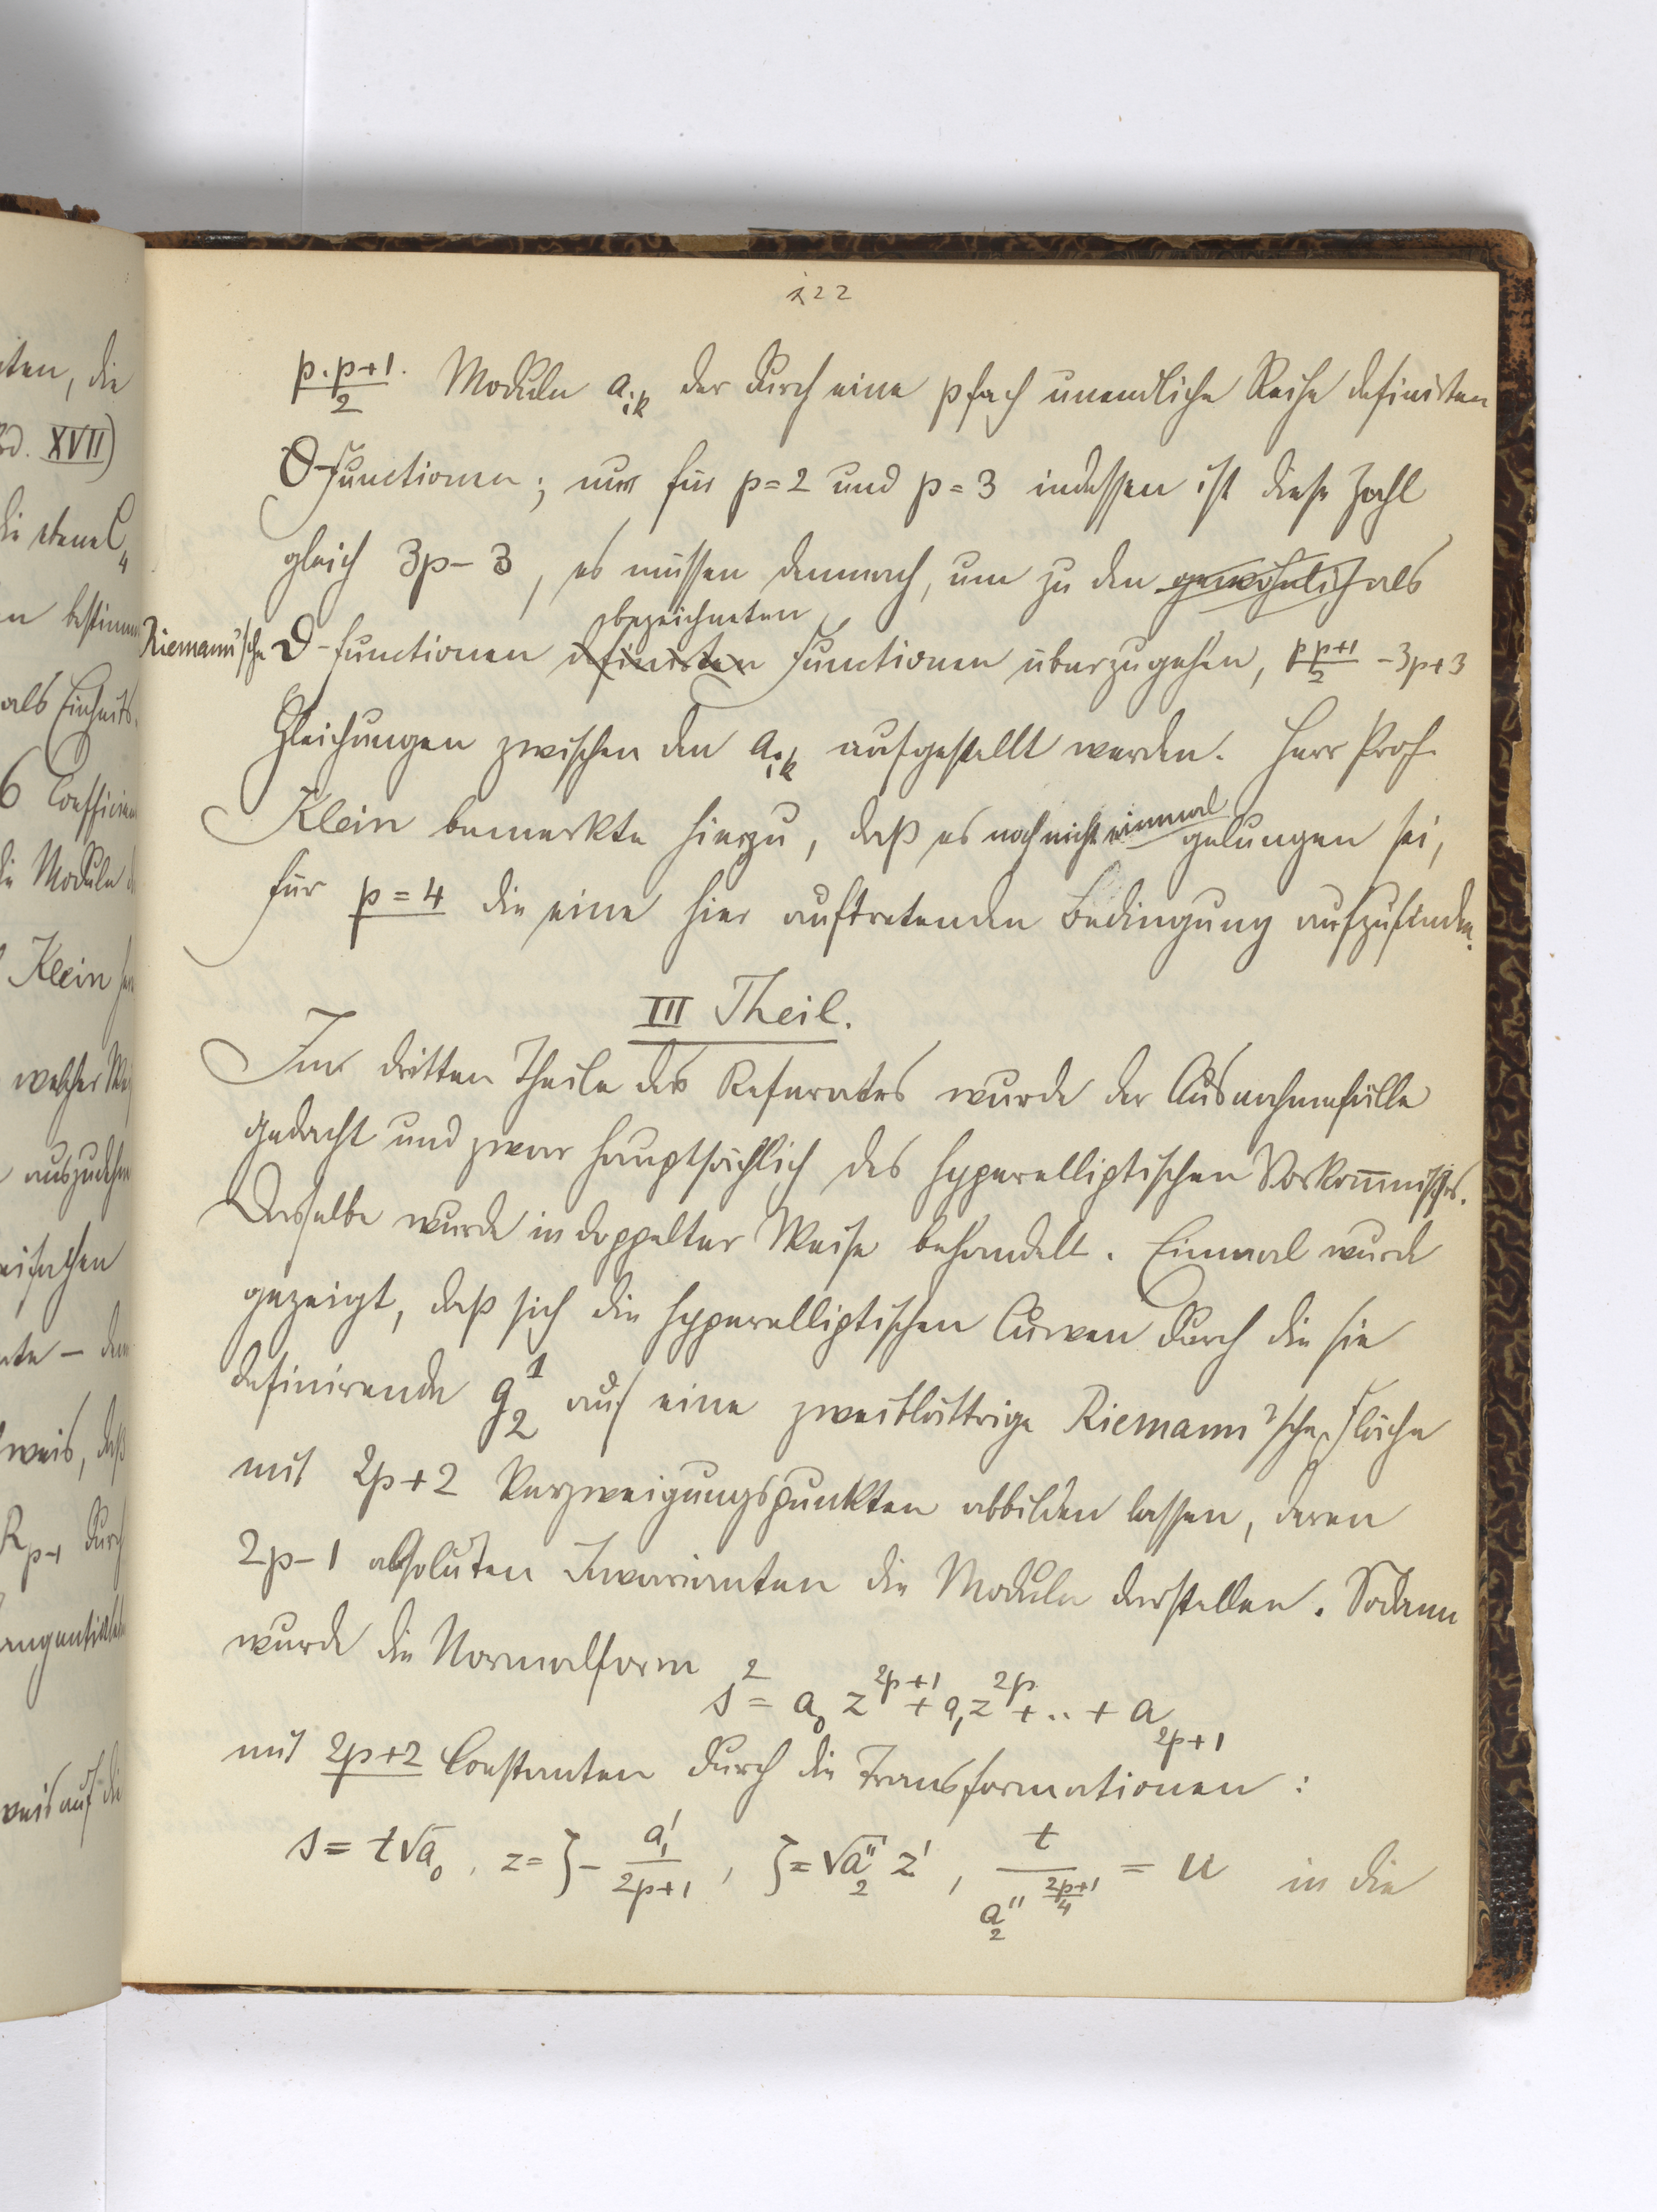 122
p.p+1/2 Moduln a_ik der durch eine pfach unendliche Reihe definirten
Θ-Functionen; nur für p=2 und p=3 indessen ist diese Zahl
gleich 3p-3, es müssen demnach, um zu den gewöhnlich als
bezeichneten
Riemann'sche ϑ-functionen definirten Functionen überzugehen, p p+1/2 -3p+3
Gleichungen zwischen den a_ik aufgestellt werden. Herr Prof.
Klein bemerkte hierzu, daß es noch nicht einmal gelungen sei,
für p=4 die eine hier auftretenden Bedingung aufzufinden.
III Theil.
Im dritten Theile des Referates wurde der Ausnahmefälle
gedacht und zwar hauptsächlich des hyperelliptischen Vorkommnisses.
Dasselbe wurde in doppelter Weise behandelt. Einmal wurde
gezeigt, daß sich die hyperelliptischen Curven durch die sie
definirende g_2^1 auf eine zweiblättrige Riemann'sche Fläche
mit 2p+2 Verzweigungspunkten abbilden lassen, deren
2p-1 absoluten Invarianten die Moduln darstellen. Sodann
wurde die Normalform
s^2 = a_0 z^{2p+1} + a_1 z^{2p} + .. + a_{2p+1}
mit 2p+2 Constanten durch die Transformationen:
s = t√a_0, z = ζ - a_1'/2p+1, ζ = √a_2'' z', t/a_2''^{2p+1/4} = u in die
ten, die
Bd. XVII)
die ebene C_4
als Einheits-
6 Coefficien
die Moduln
Klein
welcher
auszudehn
R_{p-1} durch